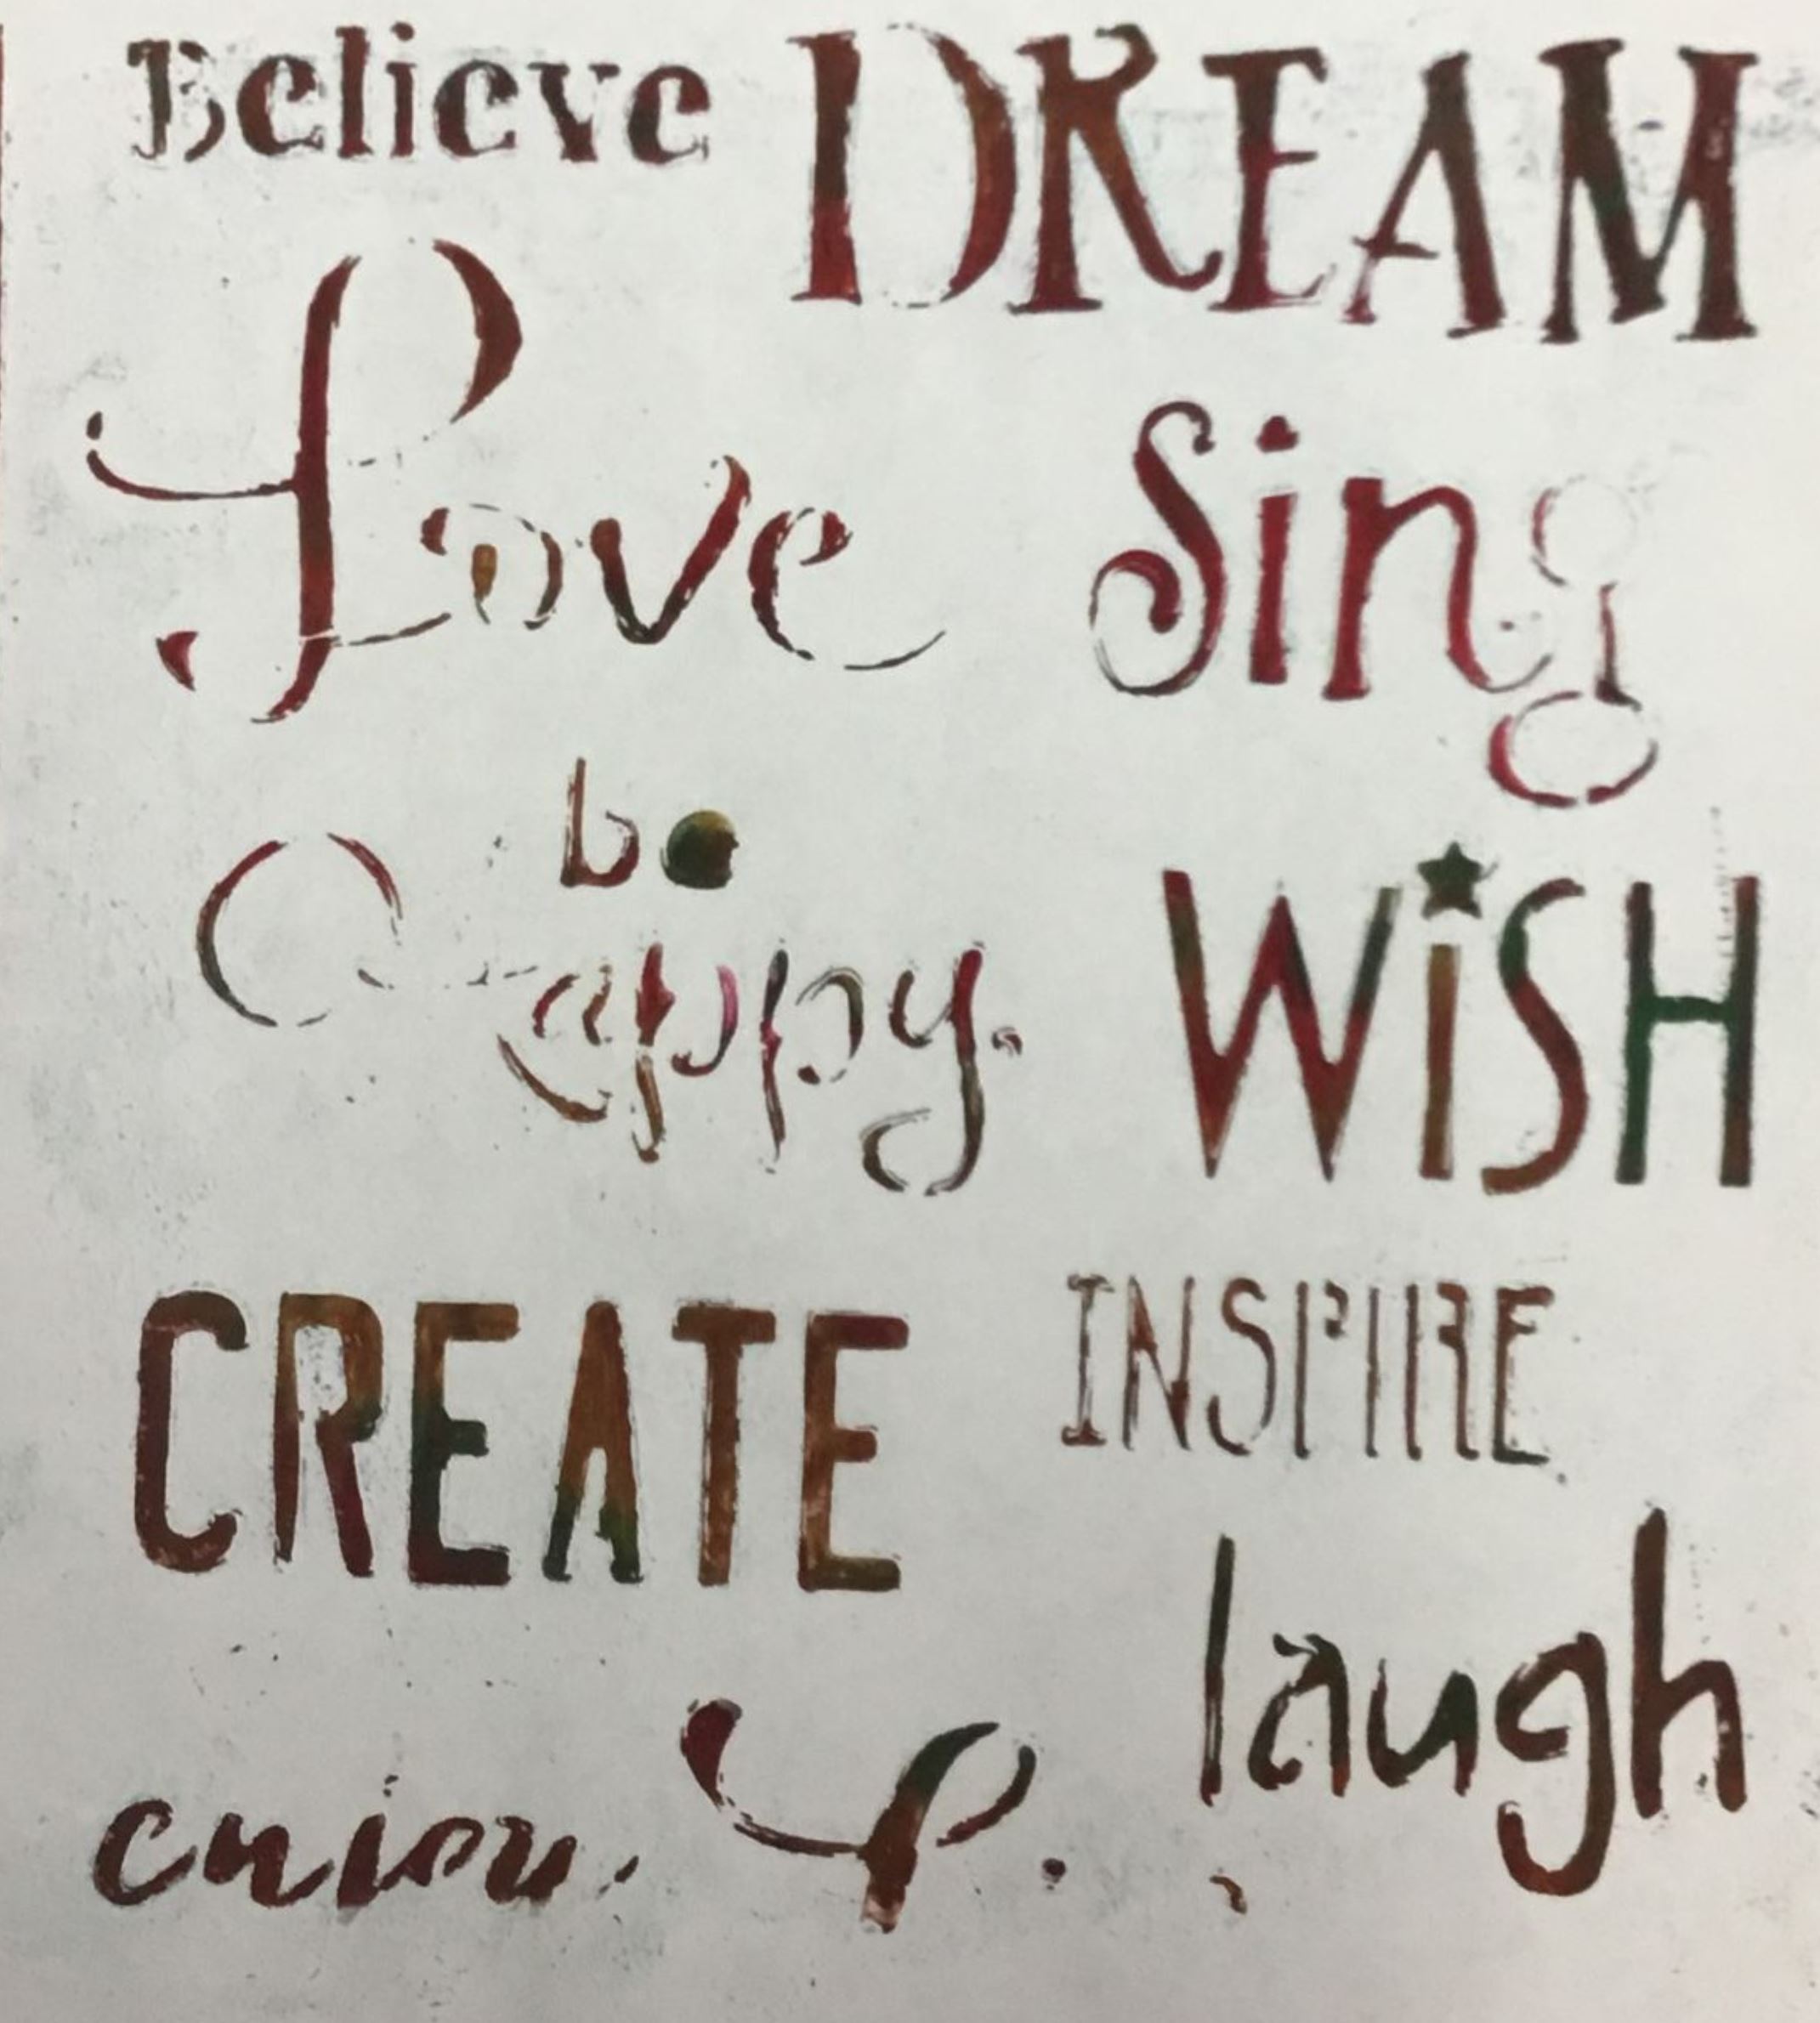 Believe DREAM
Love Sing
be
happy. WiSH
CREATE INSPIRE
laugh
enjoy